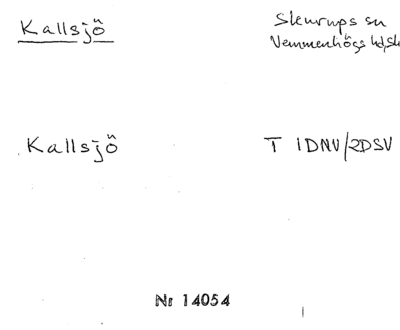 Kallsjö
Skurups sn
Vemmenhögs hd, Sk
Kallsjö
T 1DNV/2DSV
Nr 14054